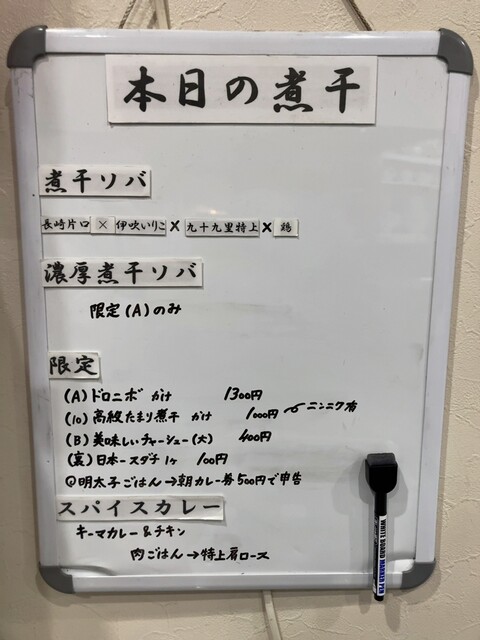 本日の煮干
煮干ソバ
長崎片口×伊吹いりこ×九十九里特上×鶏
濃厚煮干ソバ
限定(A)のみ
限定
(A)ドロニボ かけ 1300円
(10)高級たまり煮干 かけ 1000円 ニンニク有
(B)美味しいチャーシュー(大) 400円
(裏)日本一スダチ 1ヶ 100円
◎明太子ごはん→朝カレー券500円で申告
スパイスカレー
キーマカレー&チキン
肉ごはん→特上肩ロース
WHITE BOARD MARKER PEN